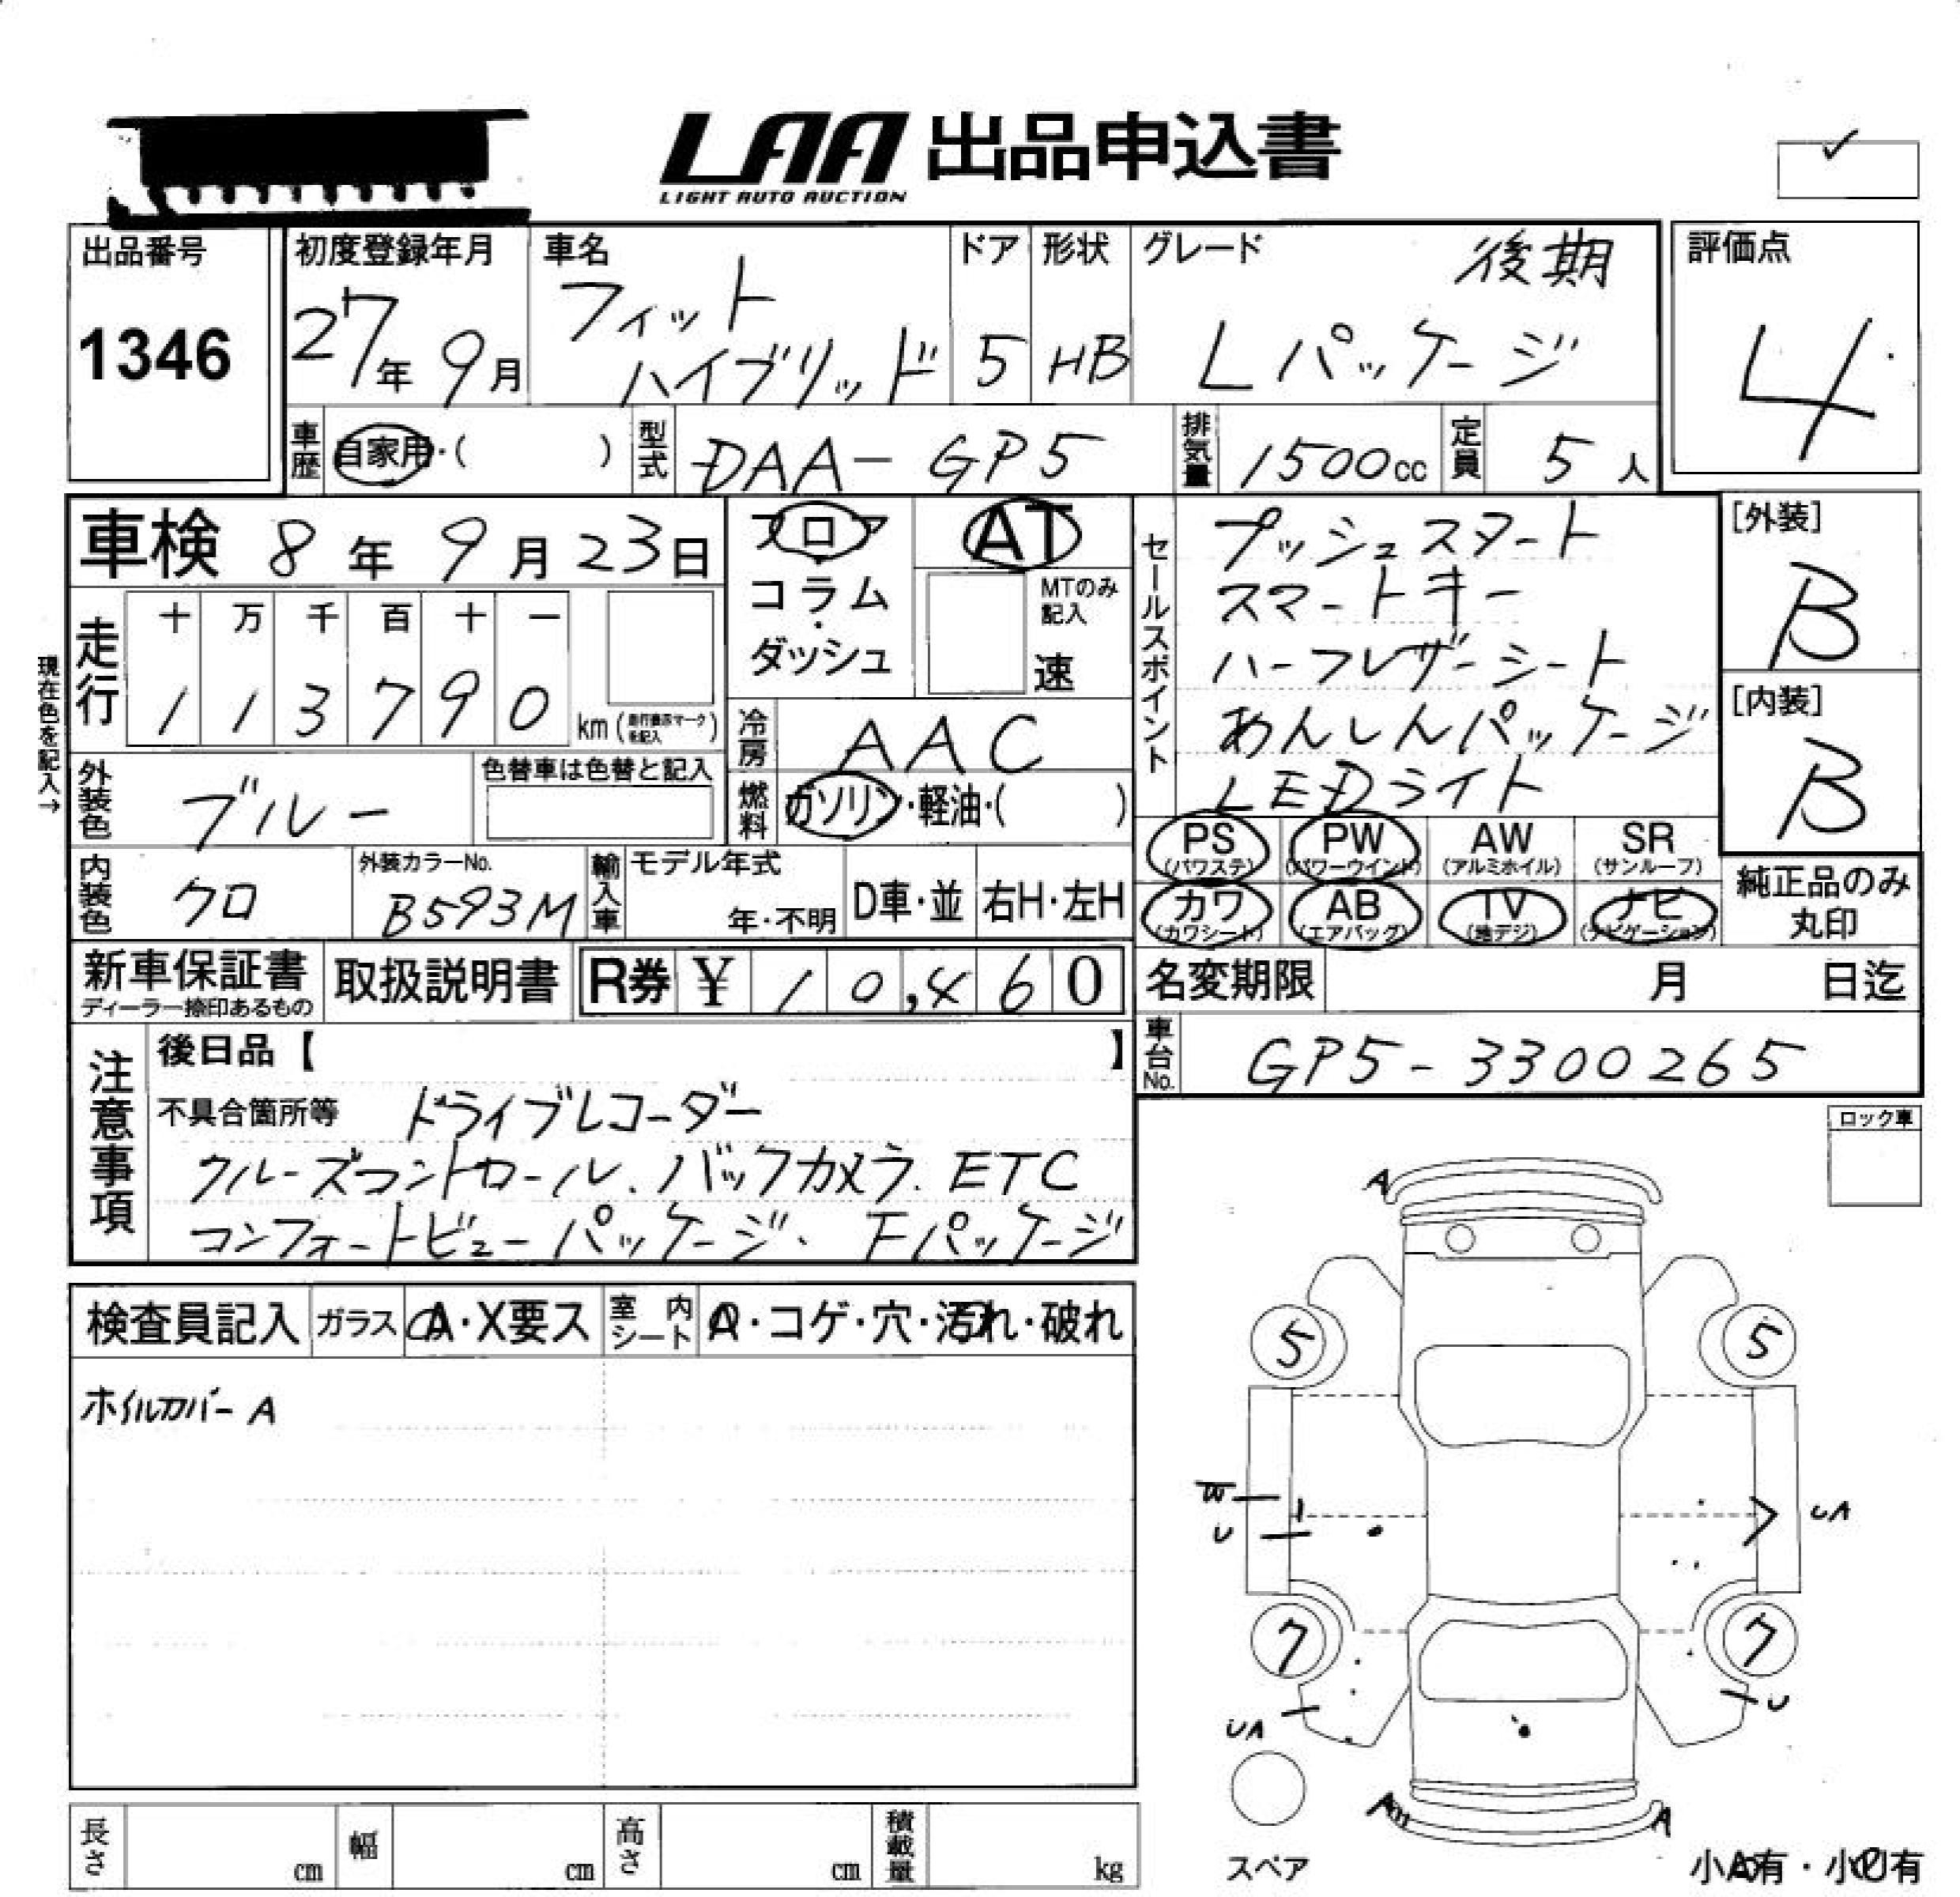 LAA 出品申込書
LIGHT AUTO AUCTION
✓
出品番号
1346
初度登録年月
27年 9月
車名
フィット
ハイブリッド
ドア
5
形状
HB
グレード
後期
Lパッケージ
評価点
4
車歴
自家用・( )
型式
DAA-GP5
排気量
1500cc
定員
5人
車検 8年 9月 23日
フロア
・
コラム
・
ダッシュ
AT
MTのみ
記入
速
セールスポイント
プッシュスタート
スマートキー
ハーフレザーシート
あんしんパッケージ
LEDライト
[外装]
B
[内装]
B
現在色を記入→
走行
十 万 千 百 十 一
1 1 3 7 9 0
km (走行表示マークを記入)
冷房
AAC
燃料
ガソリン・軽油・( )
外装色
ブルー
色替車は色替と記入
内装色
クロ
外装カラーNo.
B593M
輸入車
モデル年式
年・不明
D車・並
右H・左H
PS
(パワステ)
PW
(パワーウインド)
AW
(アルミホイル)
SR
(サンルーフ)
カワ
(カワシート)
AB
(エアバッグ)
TV
(地デジ)
ナビ
(ナビゲーション)
純正品のみ
丸印
新車保証書
ディーラー捺印あるもの
取扱説明書
R券 ¥ 10,460
名変期限 月 日迄
車台No.
GP5-3300265
注意事項
後日品【 】
不具合箇所等 ドライブレコーダー
クルーズコントロール、バックカメラ、ETC
コンフォートビューパッケージ、Fパッケージ
ロック車
検査員記入
ガラス
A・X要ス
室内
シート
・コゲ・穴・汚れ・破れ
ホイルカバーA
A
5
5
W
U
UA
7
7
UA
U
A
スペア
小A有・小U有
長さ cm
幅 cm
高さ cm
積載量 kg